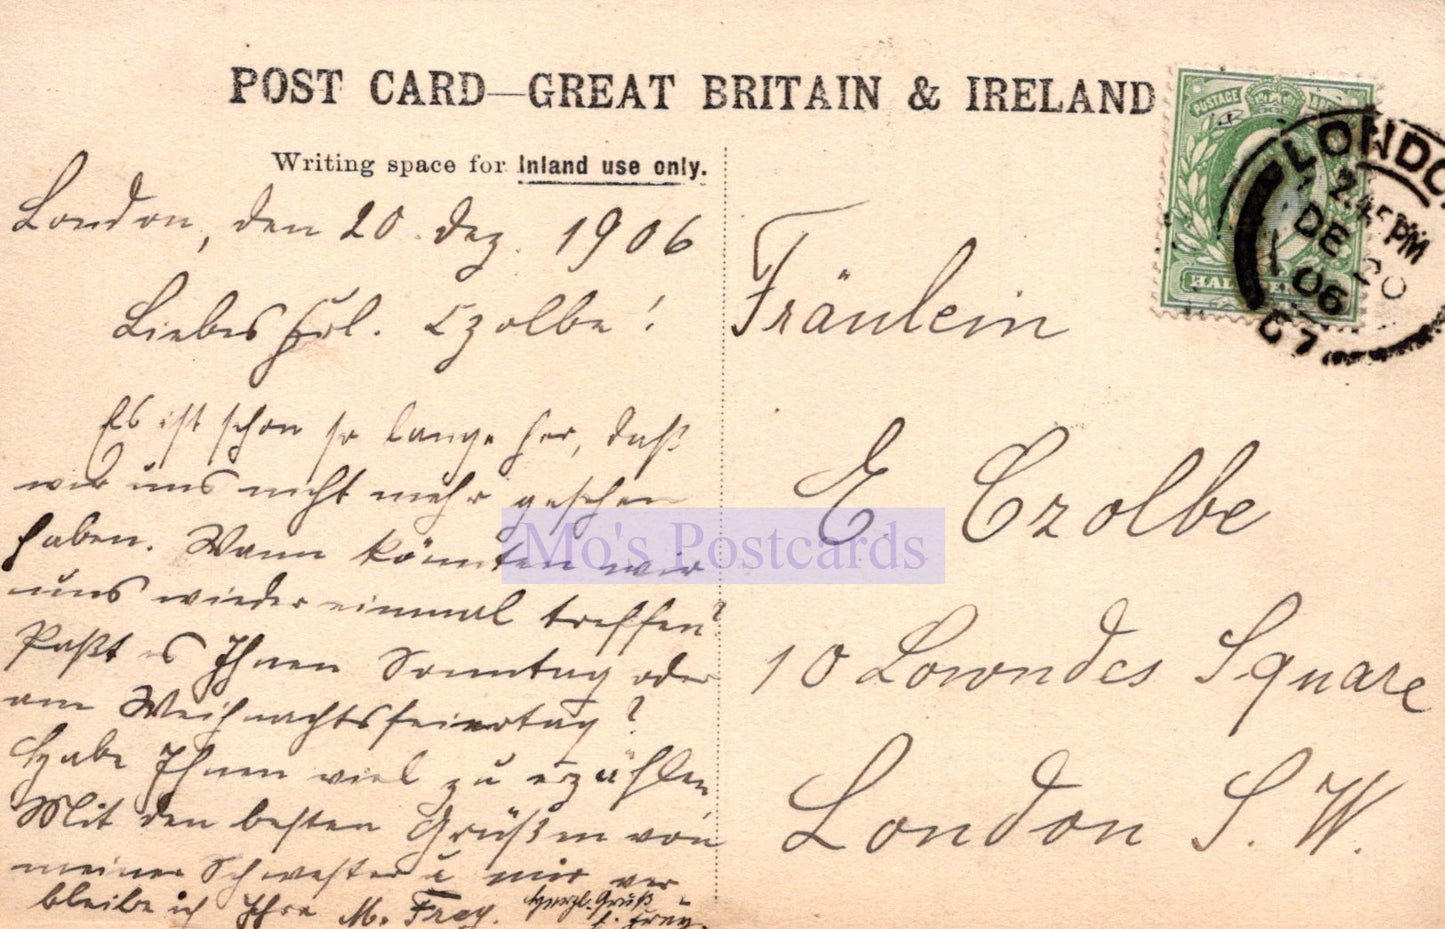 POST CARD—GREAT BRITAIN & IRELAND
Writing space for Inland use only.
London, den 20. Dez. 1906
Liebes Frl. Czolbe!
Es ist schon so lange her, daß
wir uns nicht mehr gesehen
haben. Wann könnten wir
uns wieder einmal treffen?
Paßt es Ihnen Sonntag oder
am Weihnachtsfeiertag?
Habe Ihnen viel zu erzählen
Mit den besten Grüßen von
meiner Schwester u mir ver
bleibe ich Ihre M. Frey.
Herzl. Gruß
Fräulein
E. Czolbe
10 Lowndes Square
London S. W.
POSTAGE
LONDON
2.45 PM
DE 20
06
Mo's Postcards